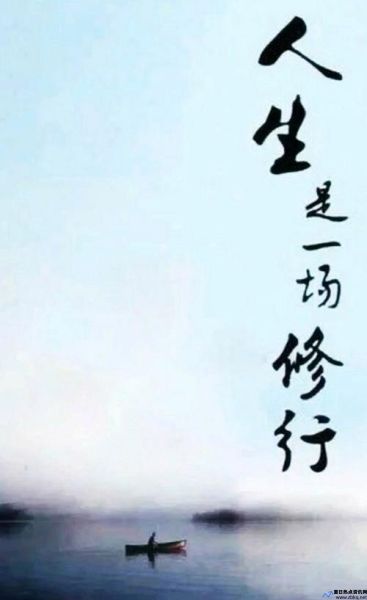 人生是一场修行